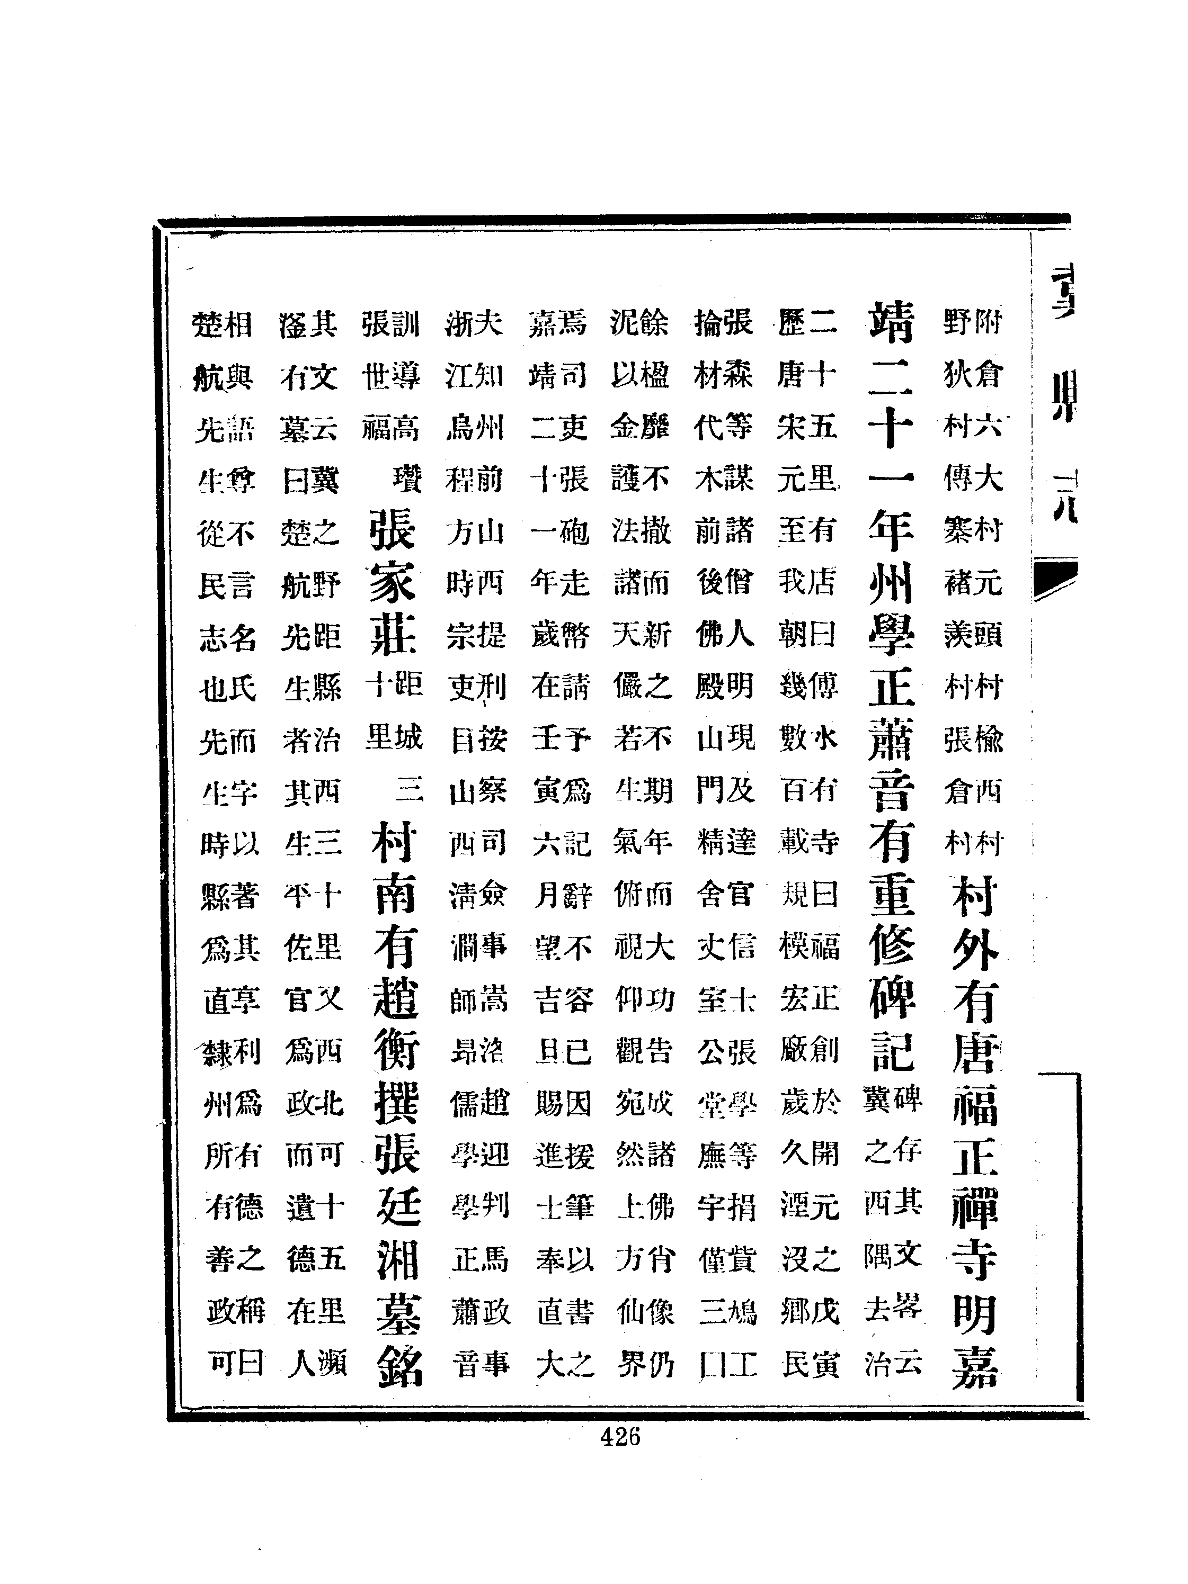 冀縣志
附倉六大村元頭村榆西村
野狄村傳寨褚羨村張倉村
村外有唐福正禪寺明嘉
靖二十一年州學正蕭音有重修碑記
碑存其文畧云
冀之西隅去治
二十五里有店曰傅水有寺曰福正創於開元之戊寅
歷唐宋元至我朝幾數百載規模宏廠歲久湮沒鄉民
張森等謀諸僧人明現及達官信士張學等捐貲鳩工
掄材代木前後佛殿山門精舍丈室公堂廡宇僅三囗
餘楹靡不撤而新之不期年而大功告成諸佛肖像仍
泥以金護法諸天儼若生氣俯視仰觀宛然上方仙界
焉司吏張砲走幣請予爲記辭不容已因援筆以書之
嘉靖二十一年歲在壬寅六月望吉旦賜進士奉直大
夫知州前山西提刑按察司僉事嵩洺趙迎判馬政事
浙江烏程方時宗吏目山西淸澗師昻儒學學正蕭音
訓導高瓚
張世福
張家莊
距城三
十里
村南有趙衡撰張廷湘墓銘
其文云冀之野距縣治西三十里又西北可十五里瀕
滏右墓曰楚航先生者其生平佐官爲政而遺德在人
相與語尊不言名氏而字以著其享利爲有德之稱曰
楚航先生從民志也先生時縣爲直隸州所有善政可
426